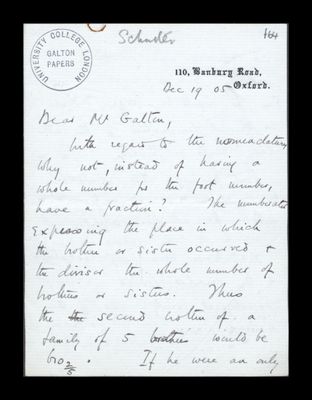 UNIVERSITY COLLEGE LONDON
GALTON
PAPERS
Schuster
164
110, Banbury Road,
Oxford.
Dec 19 05
Dear Mr Galton,
With regard to the nomenclature
why not, instead of having a
whole number for the foot number,
have a fraction? The numberator
Expressing the place in which
the brother or sister occurred &
the divisor the whole number of
brothers or sisters. Thus
the the second brother of a
family of 5 brothers would be
bro 2/5. If he were an only